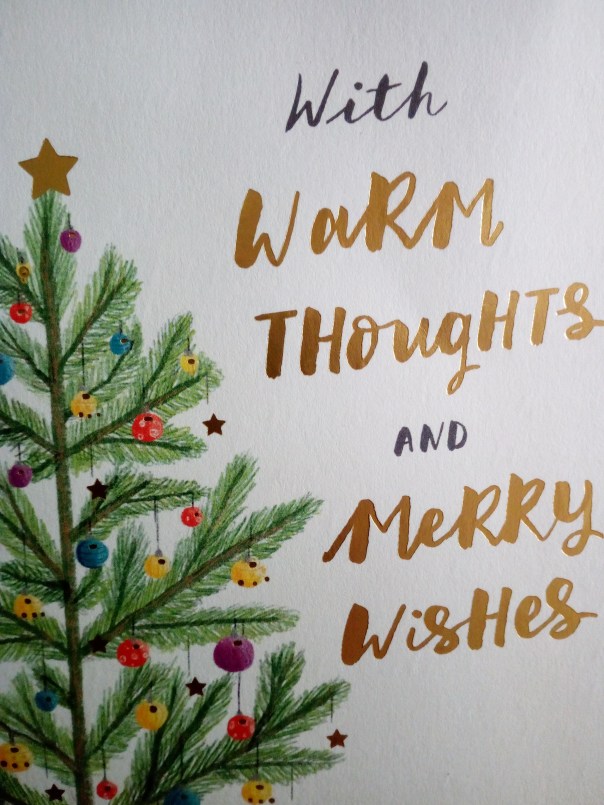 With
WaRM
THougHTS
AND
MeRRY
WisHes